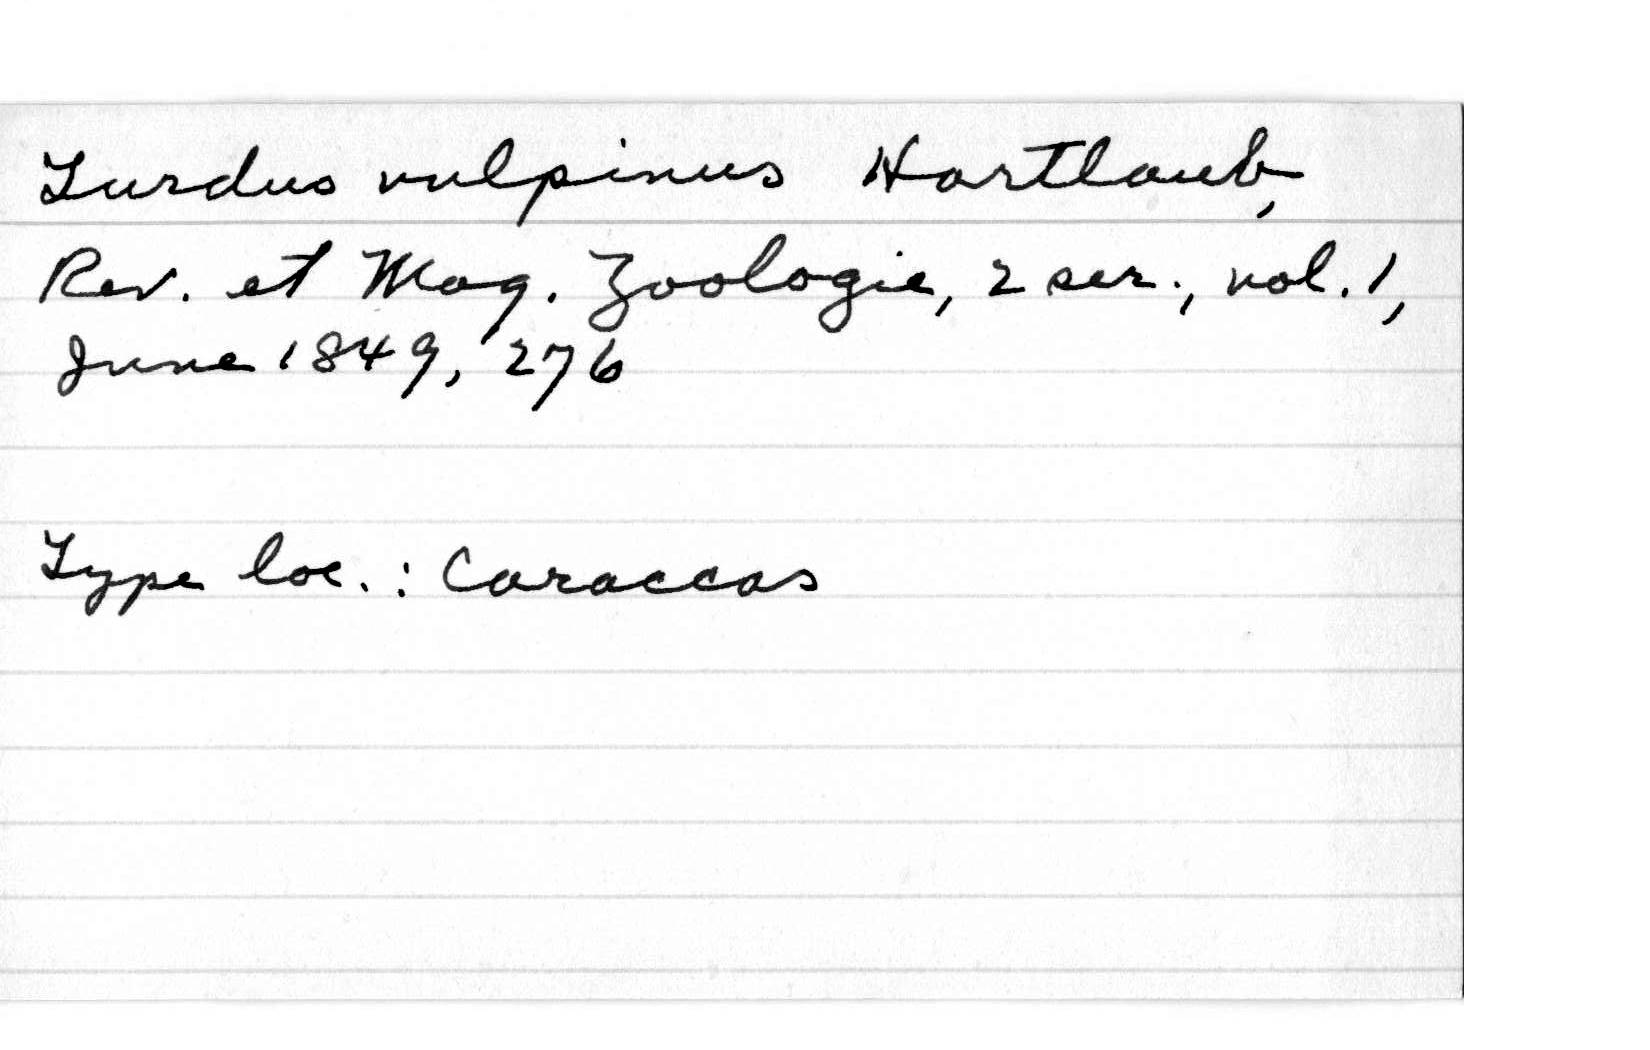 Turdus vulpinus Hartlaub,
Rev. et Mag. Zoologie, 2 ser., vol. 1,
June 1849, 276
Type loc. : Caraccas